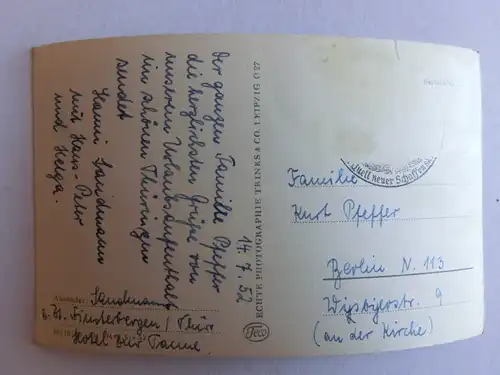 14.7.52
Der ganzen Familie Pfeffer
die herzlichsten Grüße von
unserem Urlaubsaufenthalt
im schönen Thüringen
sendet
Hanni Sandmann
mit Hans-Peter
und Helga.
Absender: Sandmann
z. Zt. Finsterbergen / Thür.
Hotel "Zur Tanne"
ECHTE PHOTOGRAPHIE TRINKS & CO. LEIPZIG C 27
Trico
Quell neuer Schaffenskr
Familie
Kurt Pfeffer
Berlin N. 113
Wisbyerstr. 9
(an der Kirche)